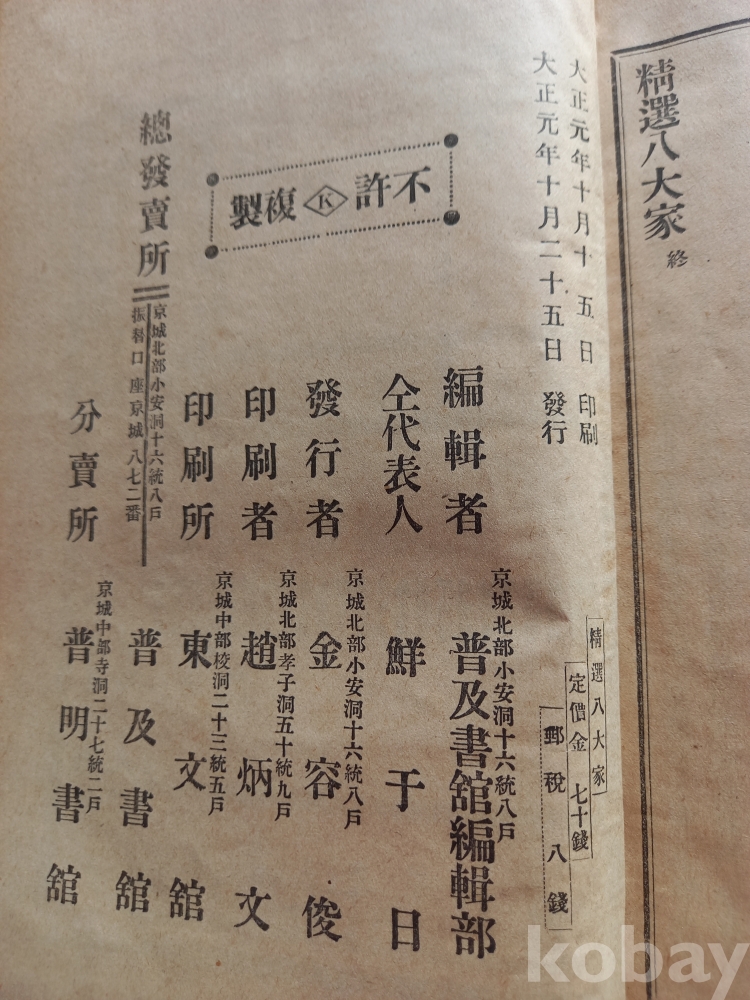 精選八大家 終
大正元年十月十五日 印刷
大正元年十月二十五日 發行
精選八大家
定價金 七十錢
郵稅 八錢
不許 K 複製
京城北部小安洞十六統八戶
編輯者 普及書舘編輯部
仝代表人 鮮于日
京城北部小安洞十六統八戶
發行者 金容俊
京城北部孝子洞五十統九戶
印刷者 趙炳文
京城中部校洞二十三統五戶
印刷所 東文舘
總發賣所 普及書舘
京城北部小安洞十六統八戶
振替口座京城八七二番
京城中部寺洞二十七統二戶
分賣所 普明書舘
kobay